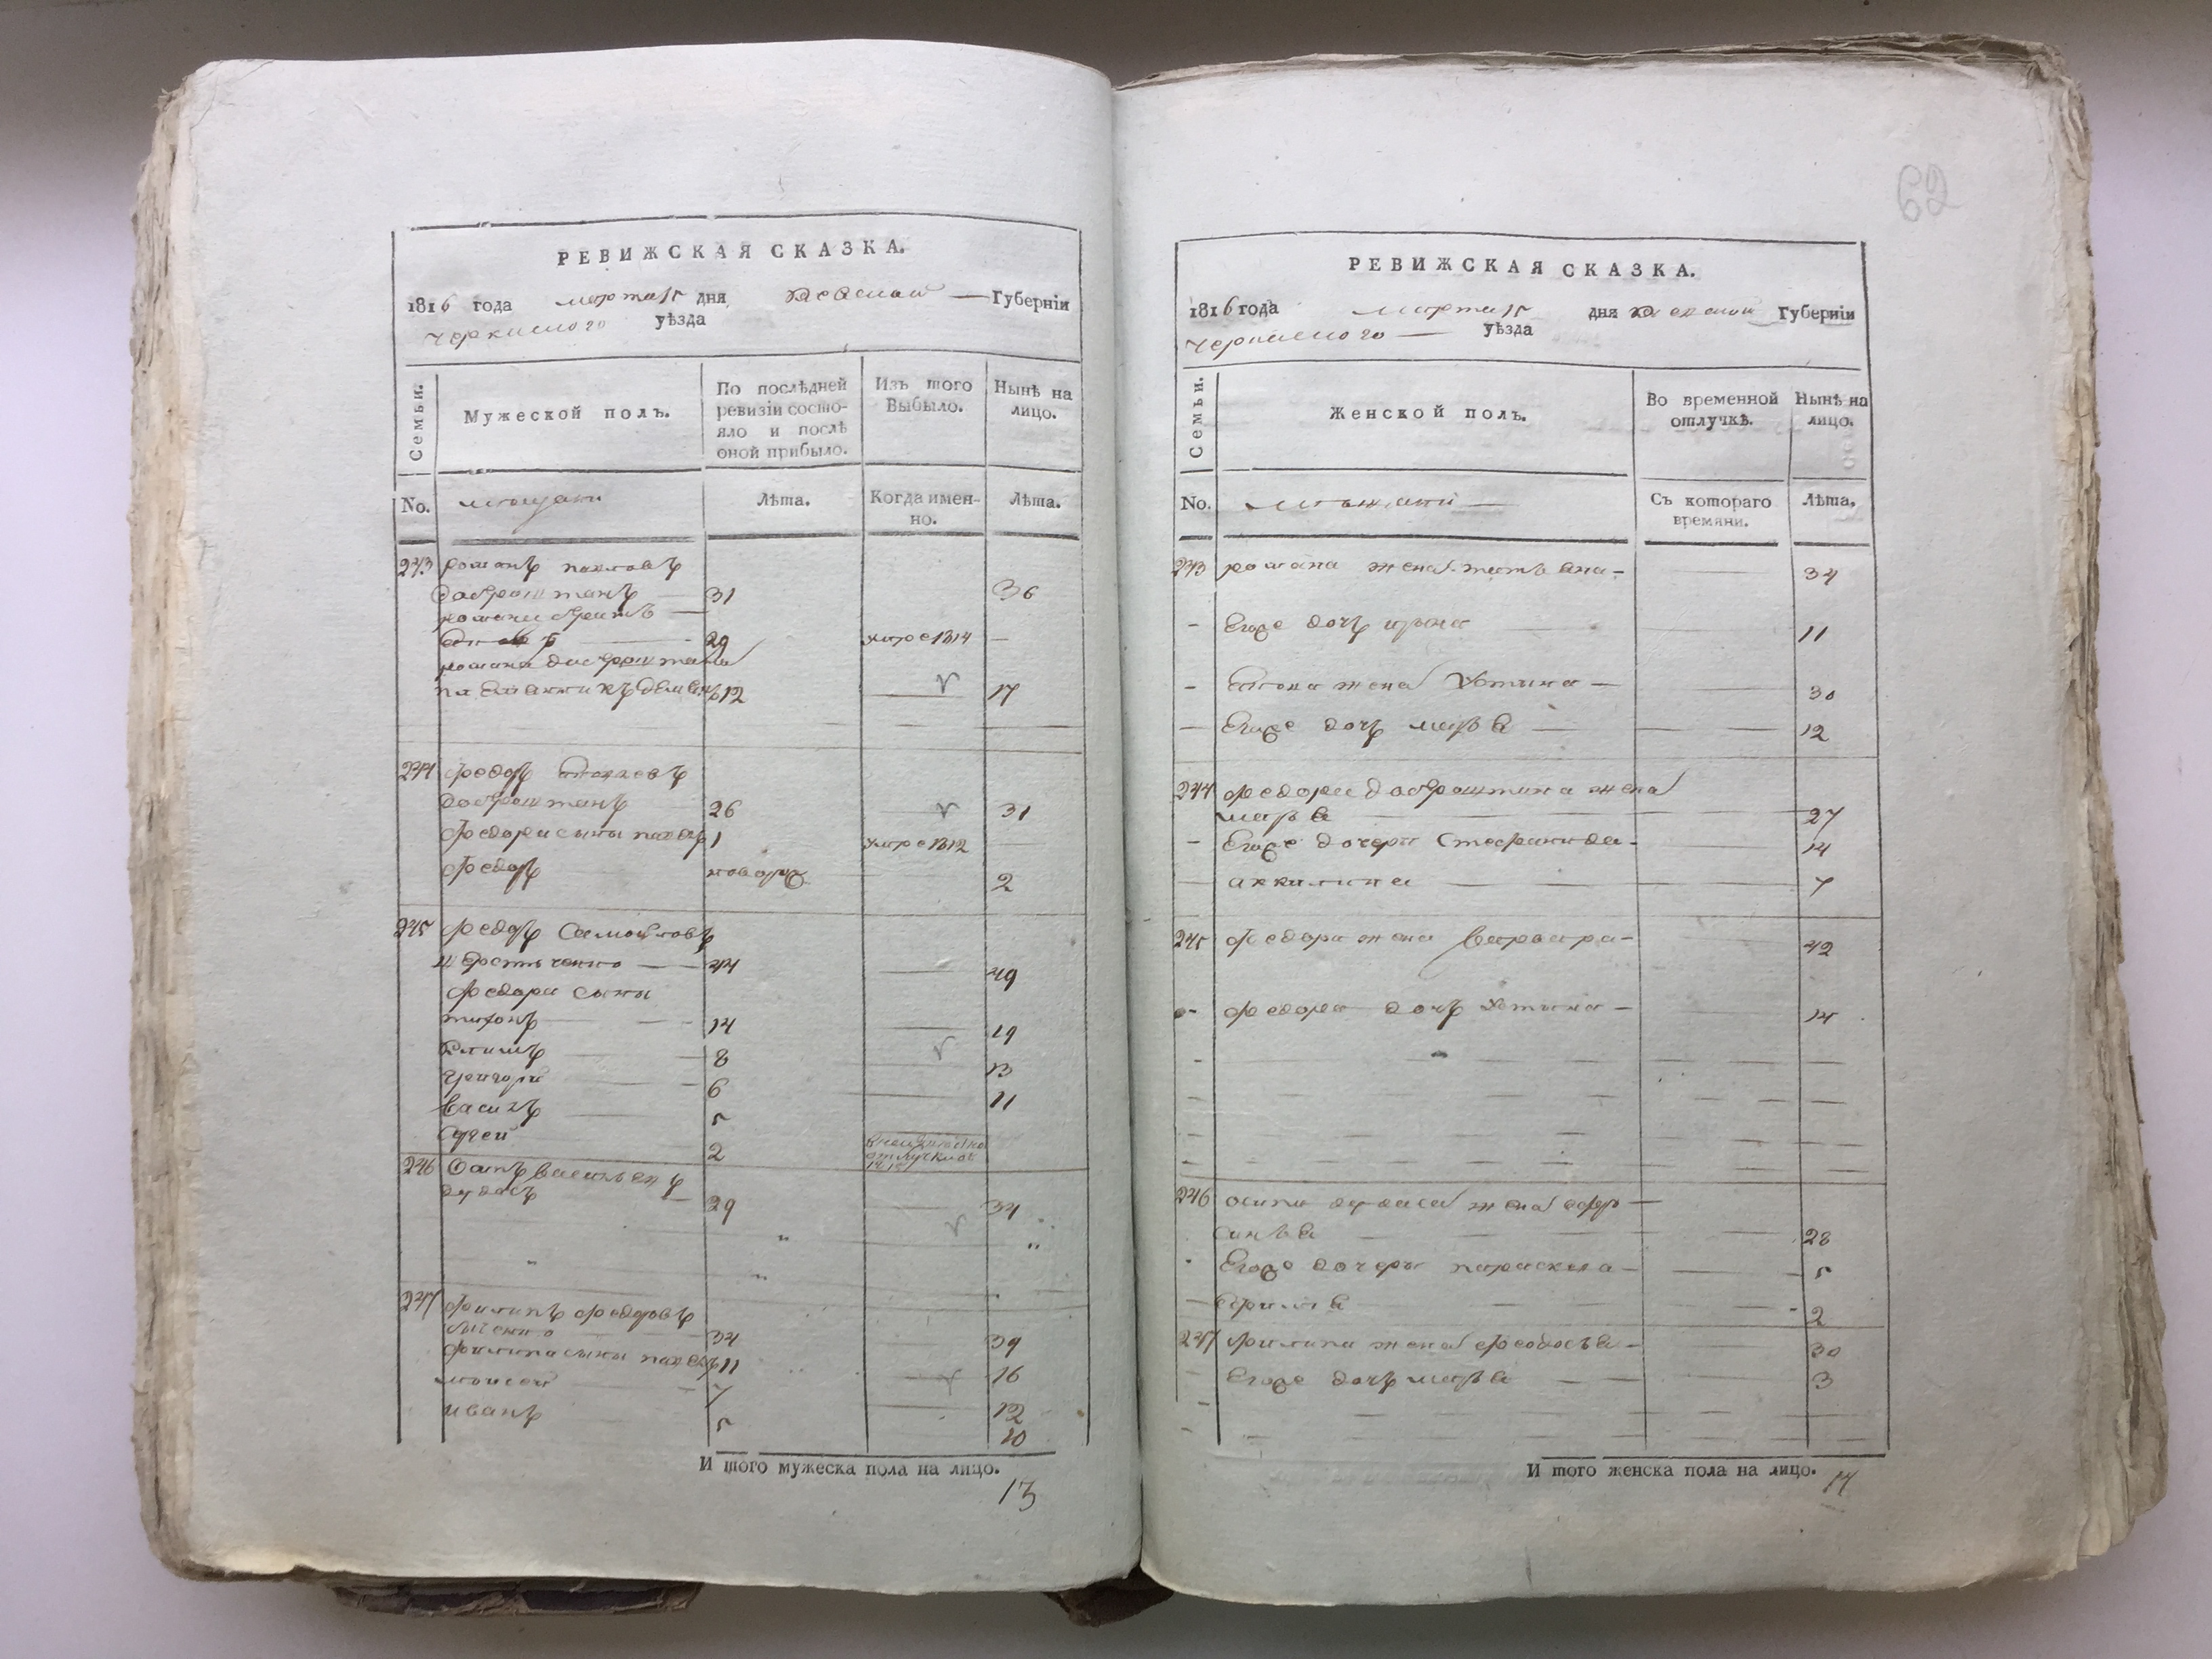 62
РЕВИЖСКАЯ СКАЗКА.
1816 года марта 15 дня Киевской Губернiи
черкаского уѣзда
Семьи.
Мужеской полъ.
По послѣдней ревизiи состо-
яло и послѣ оной прибыло.
Изъ того Выбыло.
Нынѣ на лицо.
No. мещани
Лѣта.
Когда имен-
но.
Лѣта.
243 романъ павловъ
31 36
романа братъ
29 умре 1814 —
романа
племянникъ 12 17
244 федоръ
26 31
федора сыны павелъ 1 умре 1812 —
федоръ новорж 2
245 федоръ Самойловъ
44 49
федора сыны
тихонъ 14 19
климъ 8 13
григорiй 6 11
василъ 5
Сергей 2
246 Осипъ васильевъ
дудасъ 29 34
247 филипъ федоровъ
34 39
филипа сыны павелъ 11 16
моисей 7 12
иванъ 5 10
И того мужеска пола на лицо.
13
РЕВИЖСКАЯ СКАЗКА.
1816 года марта 15 дня Киевской Губернiи
черкаского уѣзда
Семьи.
Женской полъ.
Во временной отлучкѣ.
Нынѣ на лицо.
No.
Съ котораго времяни.
Лѣта.
243 романа жена татьяна 34
Егоже дочъ ирина 11
жена Устина 30
Егоже дочъ марья 12
244 федора жена
марья 27
Егоже дочери Стефанида 14
аккилина 7
245 федора жена варвара 42
федора дочъ Устина 14
246 осипа дудаса жена ефро
синья 28
Егоже дочери параскева 5
2
247 филипа жена феодосья 30
Егоже дочъ марья 3
И того женска пола на лицо. 14